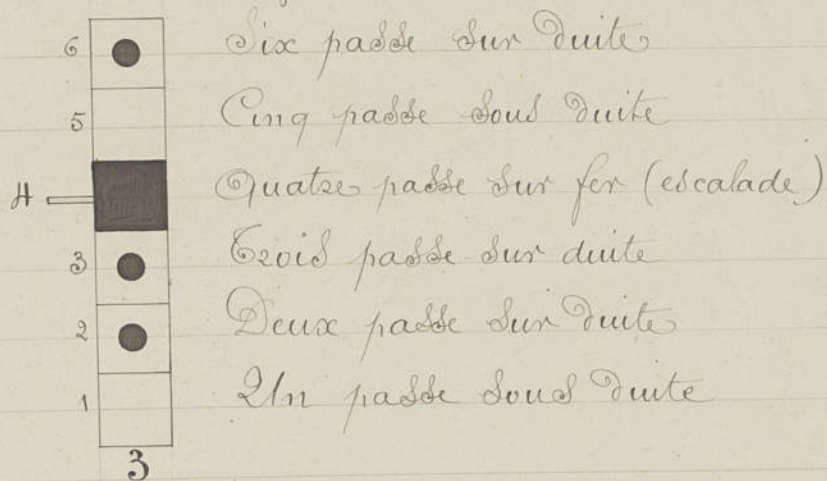 6 Six passe sur duite
5 Cinq passe sous duite
4 Quatre passe sur fer (escalade)
3 Trois passe sur duite
2 Deux passe sur duite
1 Un passe sous duite
3